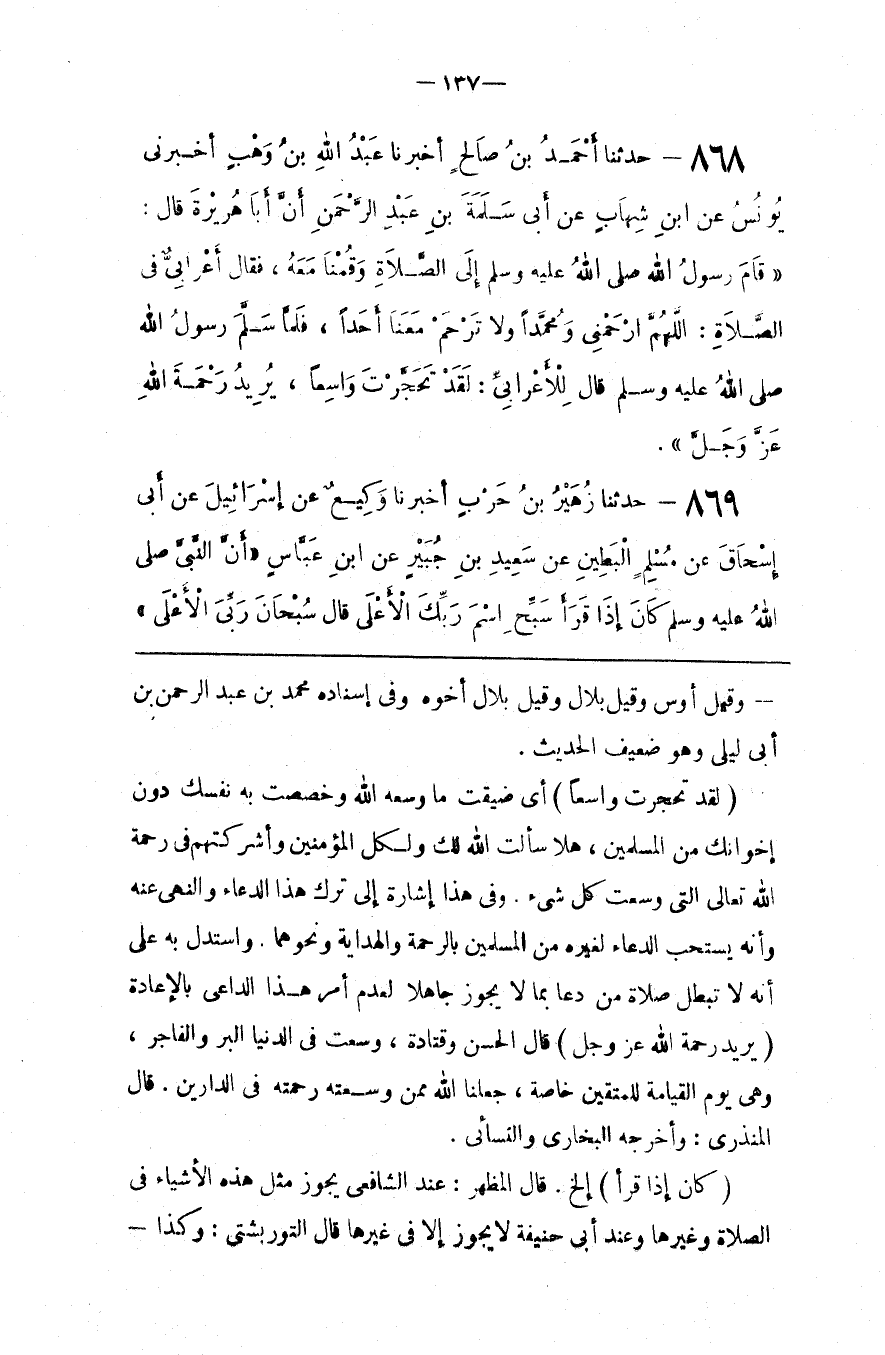 — ١٣٧ —
٨٦٨ — حدثنا أَحْمَـدُ بنُ صَالحٍ أخبرنا عَبْدُ اللهِ بنُ وَهْبٍ أخـبرنى
يُونُسُ عن ابنِ شِهاَبٍ عن أبى سَـلَمَةَ بنِ عَبْدِ الرَّحْمَنِ أَنَّ أَبَا هُرِيْرَةَ قال :
« قَامَ رسولُ الله صلى اللهُ عليه وسلم إِلَى الصَّـلاَةِ وَقُمْنَا مَعَهُ ، فقال أَعْرابىٌّ فى
الصَّـلاَةِ : اللَّهُمَّ ارْحَمْنِى وَمُحمَّداً ولا تَرْحَمْ مَعَنَا أَحَداً ، فَلَمَّا سَـلَّمَ رسولُ الله
صلى اللهُ عليه وسـلم قال لِلْأَعْرابىِّ : لَقَدْ تَحَجَّرْتَ وَاسِعاً ، يُرِيدُ رَحْمَـةَ اللهِ
عَزَّ وَجَـلَّ » .
٨٦٩ — حدثنا زُهَيْرُ بنُ حَرْبٍ أخبرنا وَكِيـعٌ عن إِسْرَائِيلَ عن أَبى
إِسْحَاقَ عن مُسْلِمٍ الْبَطِينِ عن سَعِيدِ بنِ جُبَيْرٍ عن ابنِ عَبَّاسٍ «أَنَّ النَّبىَّ صلى
اللهُ عليه وسلم كَانَ إِذَا قَرَأَ سَبِّحِ اسْمَ رَبِّكَ الْأَعْلَى قال سُبْحَانَ رَبِّىَ الْأَعْلَى »
— وقيل أوس وقيل بلال وقيل بلال أخوه وفى إسناده محمد بن عبد الرحمن بن
أبى ليلى وهو ضعيف الحديث .
( لقد تحجرت واسعاً ) أى ضيقت ما وسعه الله وخصصت به نفسك دون
إخوانك من المسلمين ، هلا سألت الله لك ولـكل المؤمنين وأشركتهم فى رحمة
الله تعالى التى وسعت كل شىء . وفى هذا إشارة إلى ترك هذا الدعاء والنهى عنه
وأنه يستحب الدعاء لغيره من المسلمين بالرحمة والهداية ونحوهما . واستدل به على
أنه لا تبطل صلاة من دعا بما لا يجوز جاهلا لعدم أمر هـذا الداعى بالإعادة
( يريد رحمة الله عز وجل ) قال الحسن وقتادة ، وسعت فى الدنيا البر والفاجر ،
وهى يوم القيامة للمتقين خاصة ، جعلنا الله ممن وسـعته رحمته فى الدارين . قال
المنذرى : وأخرجه البخارى والنسائى .
( كان إذا قرأ ) إلخ . قال المظهر : عند الشافعى يجوز مثل هذه الأشياء فى
الصلاة وغيرها وعند أبى حنيفة لا يجوز إلا فى غيرها قال التوربشتى : وكذا —